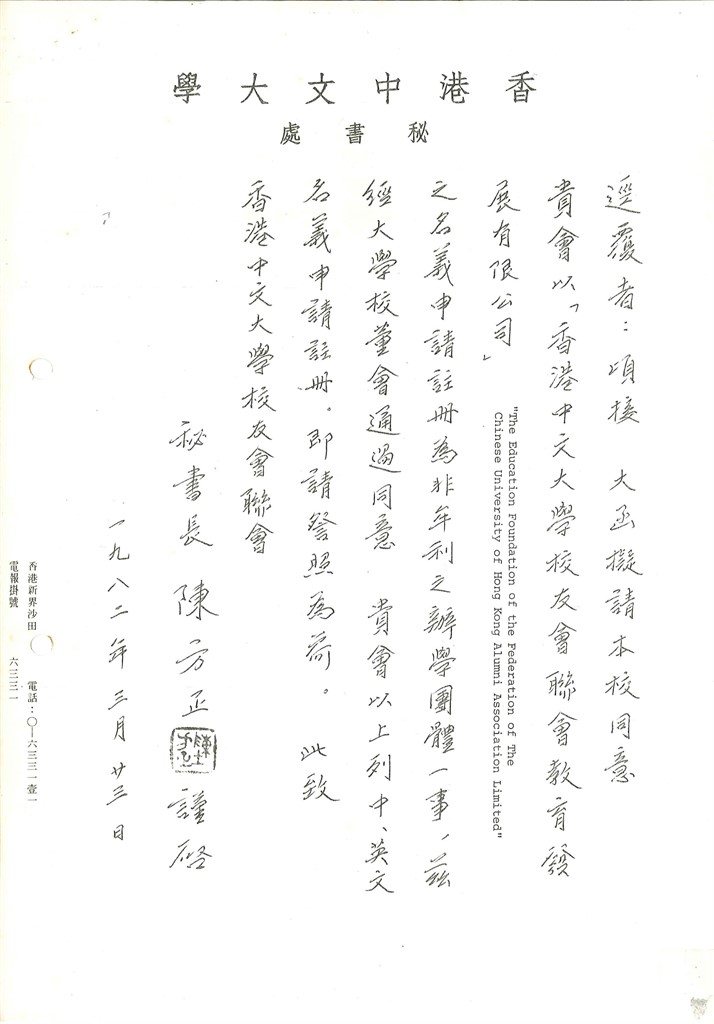 香港中文大學
秘書處
逕覆者：頃接　大函擬請本校同意
貴會以「香港中文大學校友會聯會教育發
展有限公司」
"The Education Foundation of the Federation of The
Chinese University of Hong Kong Alumni Association Limited"
之名義申請註冊為非牟利之辦學團體一事，茲
經大學校董會通過同意　貴會以上列中、英文
名義申請註冊。即請詧照為荷。　此致
香港中文大學校友會聯會
秘書長　陳方正　謹啓
一九八二年三月廿三日
香港新界沙田　電話：〇—六三三一壹一
電報掛號　六三三一